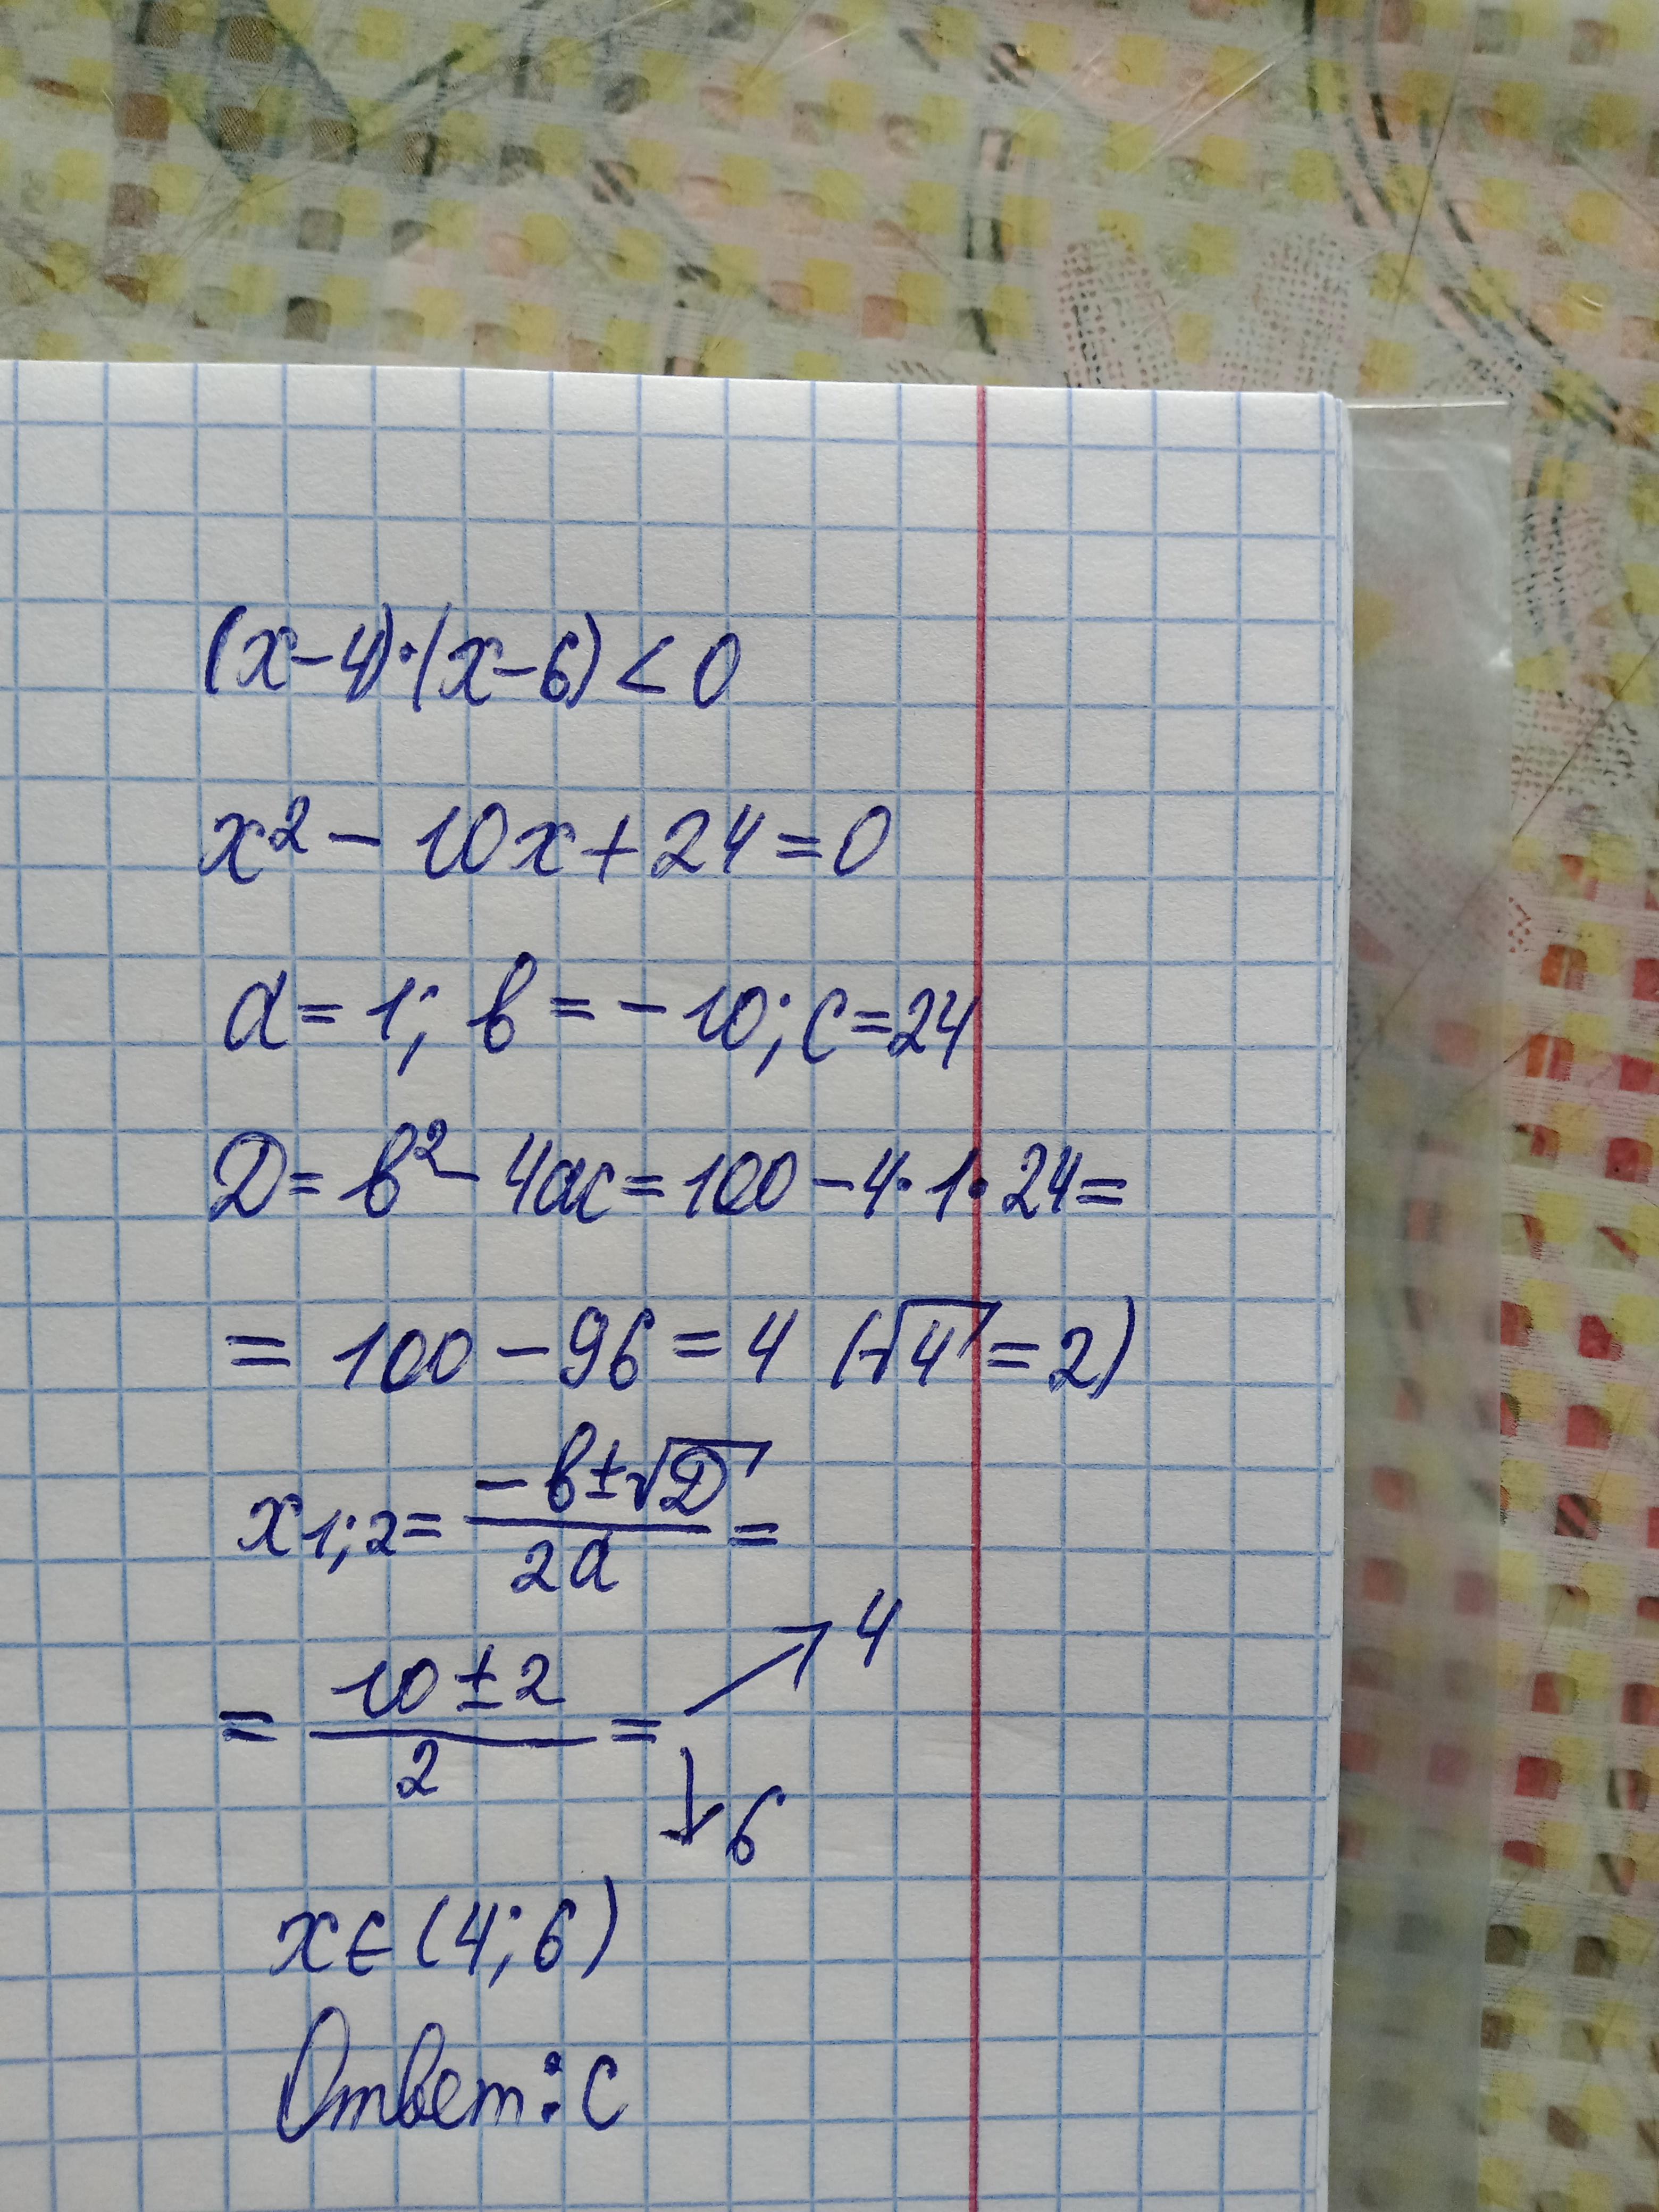 (x-4)·(x-6)<0
x²-10x+24=0
a=1; в=-10; c=24
D=в²-4ac=100-4·1·24=
=100-96=4 (√4=2)
x1;2=(-в±√D)/2a=
=(10±2)/2= ↗4 ↓6
x∈(4;6)
Ответ: C